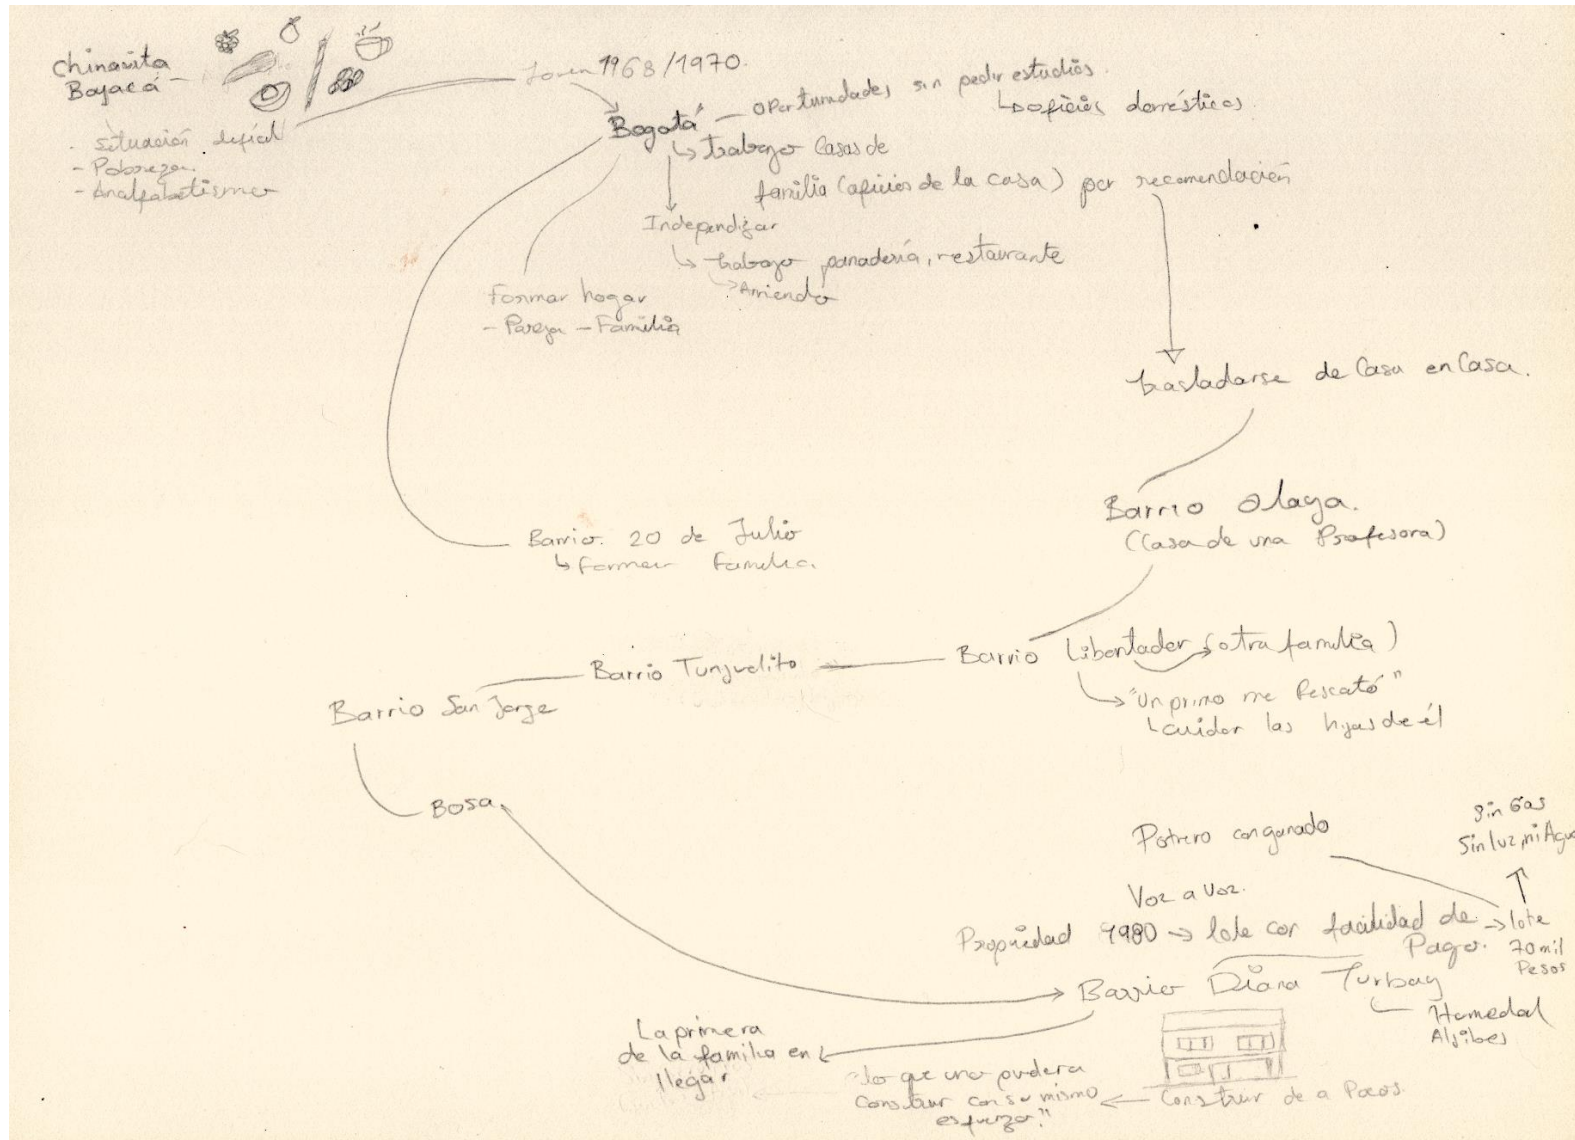 Chinavita
Boyacá -
- Situación dificil
- Pobreza
- Analfabetismo
Joven 1968/1970.
Bogotá - oportunidades sin pedir estudios.
oficios domésticos
trabajo Casas de
familia (oficios de la casa) por recomendación
Independizar
trabajo panadería, restaurante
Arriendo
Formar hogar
- Pareja - Familia
trasladarse de Casa en Casa.
Barrio Olaya.
(Casa de una Profesora)
Barrio. 20 de Julio
Formar Familia.
Barrio Libertador (otra familia)
"Un primo me Rescató"
cuidar las hijas de él
Barrio Tunjuelito
Barrio San Jorge
Bosa
Potrero con ganado
Sin Gas
Sin luz, ni Agua
Voz a Voz.
Propiedad 1980 → lote con facilidad de
Pago.
→ lote
70 mil
Pesos
Barrio Diana Turbay
Humedal
Aljibes
La primera
de la familia en
llegar
"lo que uno pudiera
Construir con su mismo
esfuerzo."
Construir de a Pocos.